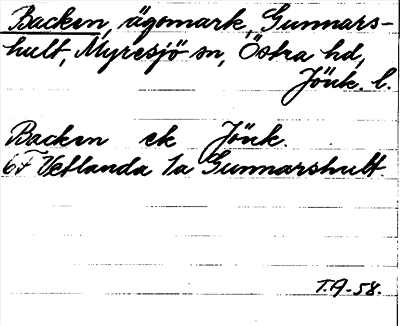 Backen, ägomark, Gunnars-
hult, Myresjö sn, Östra hd,
Jönk. l.
Backen ek Jönk.
6F Vetlanda 1a Gunnarshult.
T.A-58.